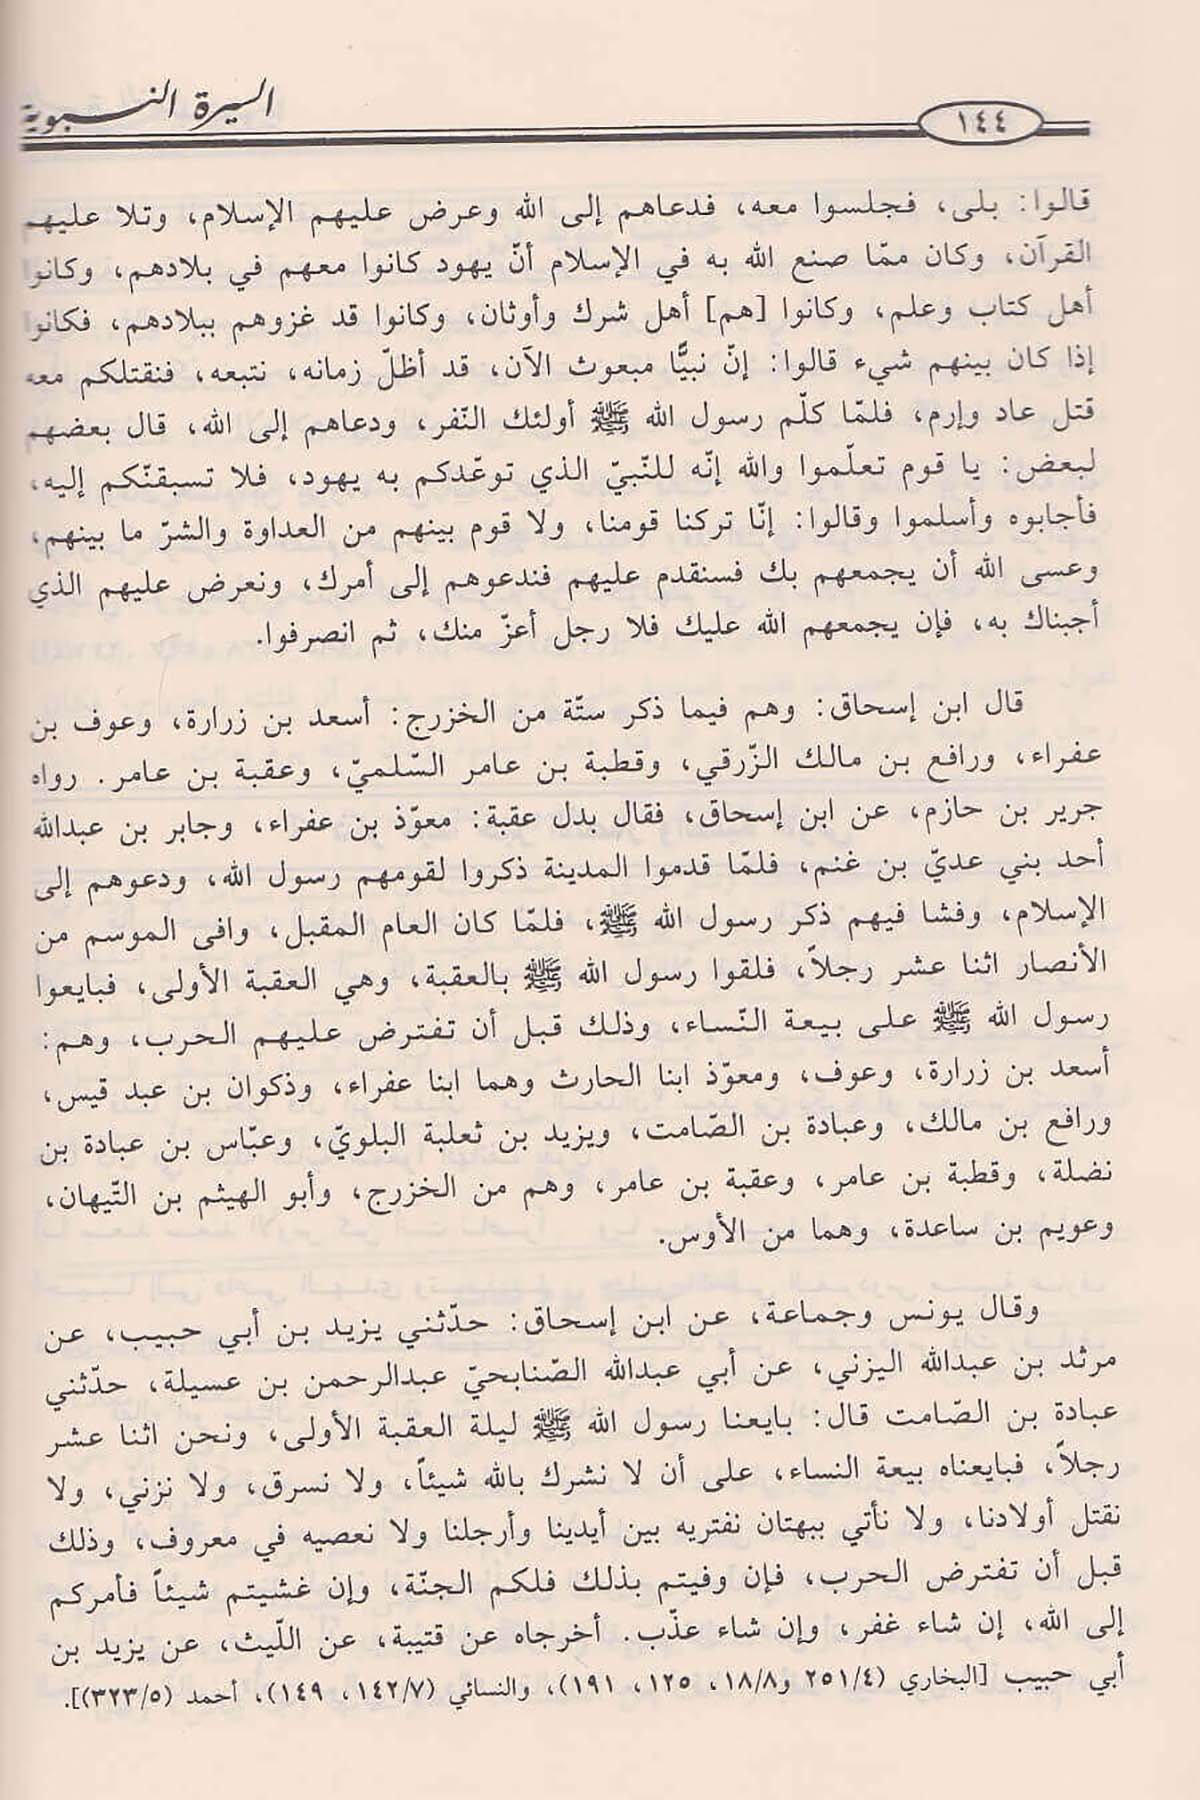 السيرة النبوية
١٤٤
قالوا: بلى، فجلسوا معه، فدعاهم إلى الله وعرض عليهم الإسلام، وتلا عليهم
القرآن، وكان ممّا صنع الله به في الإسلام أنّ يهود كانوا معهم في بلادهم، وكانوا
أهل كتاب وعلم، وكانوا [هم] أهل شرك وأوثان، وكانوا قد غزوهم ببلادهم، فكانوا
إذا كان بينهم شيء قالوا: إنّ نبيًّا مبعوث الآن، قد أظلّ زمانه، نتبعه، فنقتلكم معه
قتل عاد وإرم، فلمّا كلّم رسول الله ﷺ أولئك النّفر، ودعاهم إلى الله، قال بعضهم
لبعض: يا قوم تعلّموا والله إنّه للنّبيّ الذي توعّدكم به يهود، فلا تسبقنّكم إليه،
فأجابوه وأسلموا وقالوا: إنّا تركنا قومنا، ولا قوم بينهم من العداوة والشرّ ما بينهم،
وعسى الله أن يجمعهم بك فسنقدم عليهم فندعوهم إلى أمرك، ونعرض عليهم الذي
أجبناك به، فإن يجمعهم الله عليك فلا رجل أعزّ منك، ثم انصرفوا.
قال ابن إسحاق: وهم فيما ذكر ستّة من الخزرج: أسعد بن زرارة، وعوف بن
عفراء، ورافع بن مالك الزّرقي، وقطبة بن عامر السّلميّ، وعقبة بن عامر. رواه
جرير بن حازم، عن ابن إسحاق، فقال بدل عقبة: معوّذ بن عفراء، وجابر بن عبدالله
أحد بني عديّ بن غنم، فلمّا قدموا المدينة ذكروا لقومهم رسول الله، ودعوهم إلى
الإسلام، وفشا فيهم ذكر رسول الله ﷺ، فلمّا كان العام المقبل، وافى الموسم من
الأنصار اثنا عشر رجلاً، فلقوا رسول الله ﷺ بالعقبة، وهي العقبة الأولى، فبايعوا
رسول الله ﷺ على بيعة النّساء، وذلك قبل أن تفترض عليهم الحرب، وهم:
أسعد بن زرارة، وعوف، ومعوّذ ابنا الحارث وهما ابنا عفراء، وذكوان بن عبد قيس،
ورافع بن مالك، وعبادة بن الصّامت، ويزيد بن ثعلبة البلويّ، وعبّاس بن عبادة بن
نضلة، وقطبة بن عامر، وعقبة بن عامر، وهم من الخزرج، وأبو الهيثم بن التّيهان،
وعويم بن ساعدة، وهما من الأوس.
وقال يونس وجماعة، عن ابن إسحاق: حدّثني يزيد بن أبي حبيب، عن
مرثد بن عبدالله اليزني، عن أبي عبدالله الصّنابحيّ عبدالرحمن بن عسيلة، حدّثني
عبادة بن الصّامت قال: بايعنا رسول الله ﷺ ليلة العقبة الأولى، ونحن اثنا عشر
رجلاً، فبايعناه بيعة النساء، على أن لا نشرك بالله شيئاً، ولا نسرق، ولا نزني، ولا
نقتل أولادنا، ولا نأتي ببهتان نفتريه بين أيدينا وأرجلنا ولا نعصيه في معروف، وذلك
قبل أن تفترض الحرب، فإن وفيتم بذلك فلكم الجنّة، وإن غشيتم شيئاً فأمركم
إلى الله، إن شاء غفر، وإن شاء عذّب. أخرجاه عن قتيبة، عن اللّيث، عن يزيد بن
أبي حبيب [البخاري (٢٥١/٤ و١٨/٨، ١٢٥، ١٩١)، والنسائي (١٤٢/٧، ١٤٩)، أحمد (٣٢٣/٥)].